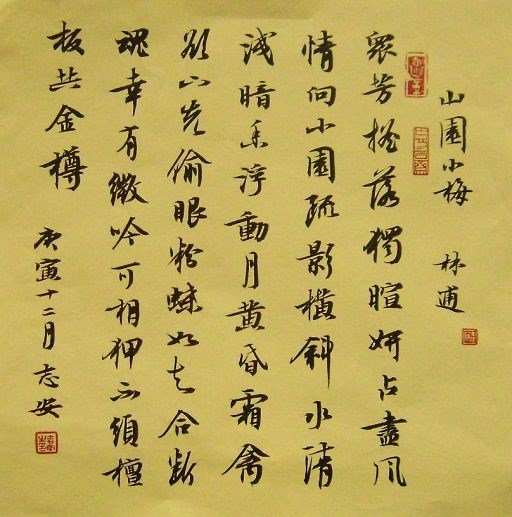 山園小梅 林逋
衆芳搖落獨暄妍占盡風
情向小園疏影橫斜水清
淺暗香浮動月黄昏霜禽
欲下先偷眼粉蝶如知合断
魂幸有微吟可相狎不須檀
板共金樽
庚寅十二月志安